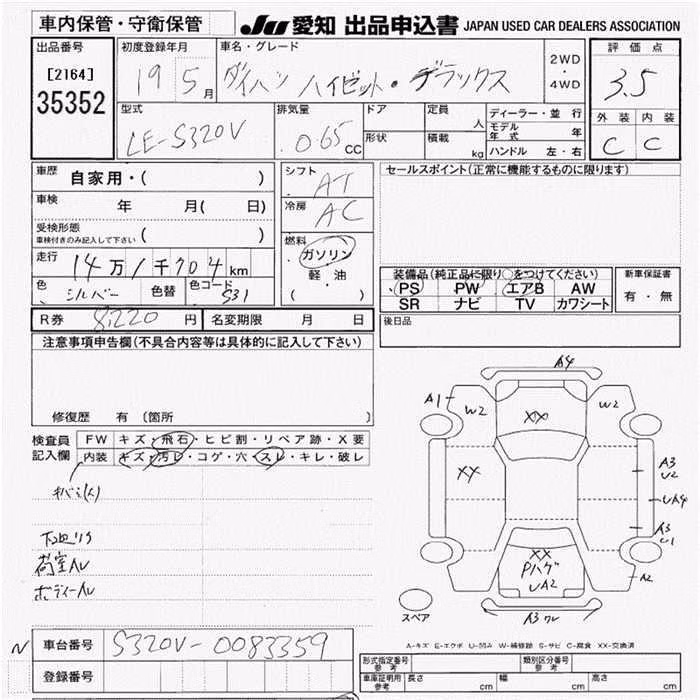 車内保管・守衛保管 JU 愛知 出品申込書 JAPAN USED CAR DEALERS ASSOCIATION
出品番号 初度登録年月 車名・グレード 評価点
[2164] 19 5月 ダイハツ ハイゼット・デラックス 2WD・4WD 3.5
35352
型式 排気量 ドア 定員 人 ディーラー・並行 外装 内装
LE-S320V 0.65 CC 形状 積載 kg モデル年式 年 C C
ハンドル 左・右
車歴 自家用・( ) シフト AT セールスポイント(正常に機能するものに限ります)
車検 年 月( 日) 冷房 AC
受検形態
車検付きのみ記入して下さい ( )
燃料 ガソリン
軽・油
( )
走行 14万1千704km
色 シルバー 色替 色コード S31
装備品(純正品に限り○をつけてください) 新車保証書
PS PW エアB AW 有・無
SR ナビ TV カワシート
R券 8,220円 名変期限 月 日
後日品
注意事項申告欄(不具合内容等は具体的に記入して下さい)
修復歴 有 (箇所 )
検査員 FW キズ・飛石・ヒビ割・リペア跡・X要
記入欄 内装 キズ・汚レ・コゲ・穴・スレ・キレ・破レ
下回リサ
荷室AU
ボディーAU
A4
A1 W2 XX W2
XX A3
U2
UA4
A3
U1
XX
Pハゲ
UA2
A2
A3 ワレ
スペア
A-キズ E-エクボ U-凹み W-補修跡 S-サビ C-腐食 XX-交換済
N 車台番号 S320V-0083359
登録番号
形式指定番号 参考 類別区分番号 参考
車庫証明用 参考 長さ cm 幅 cm 高さ cm